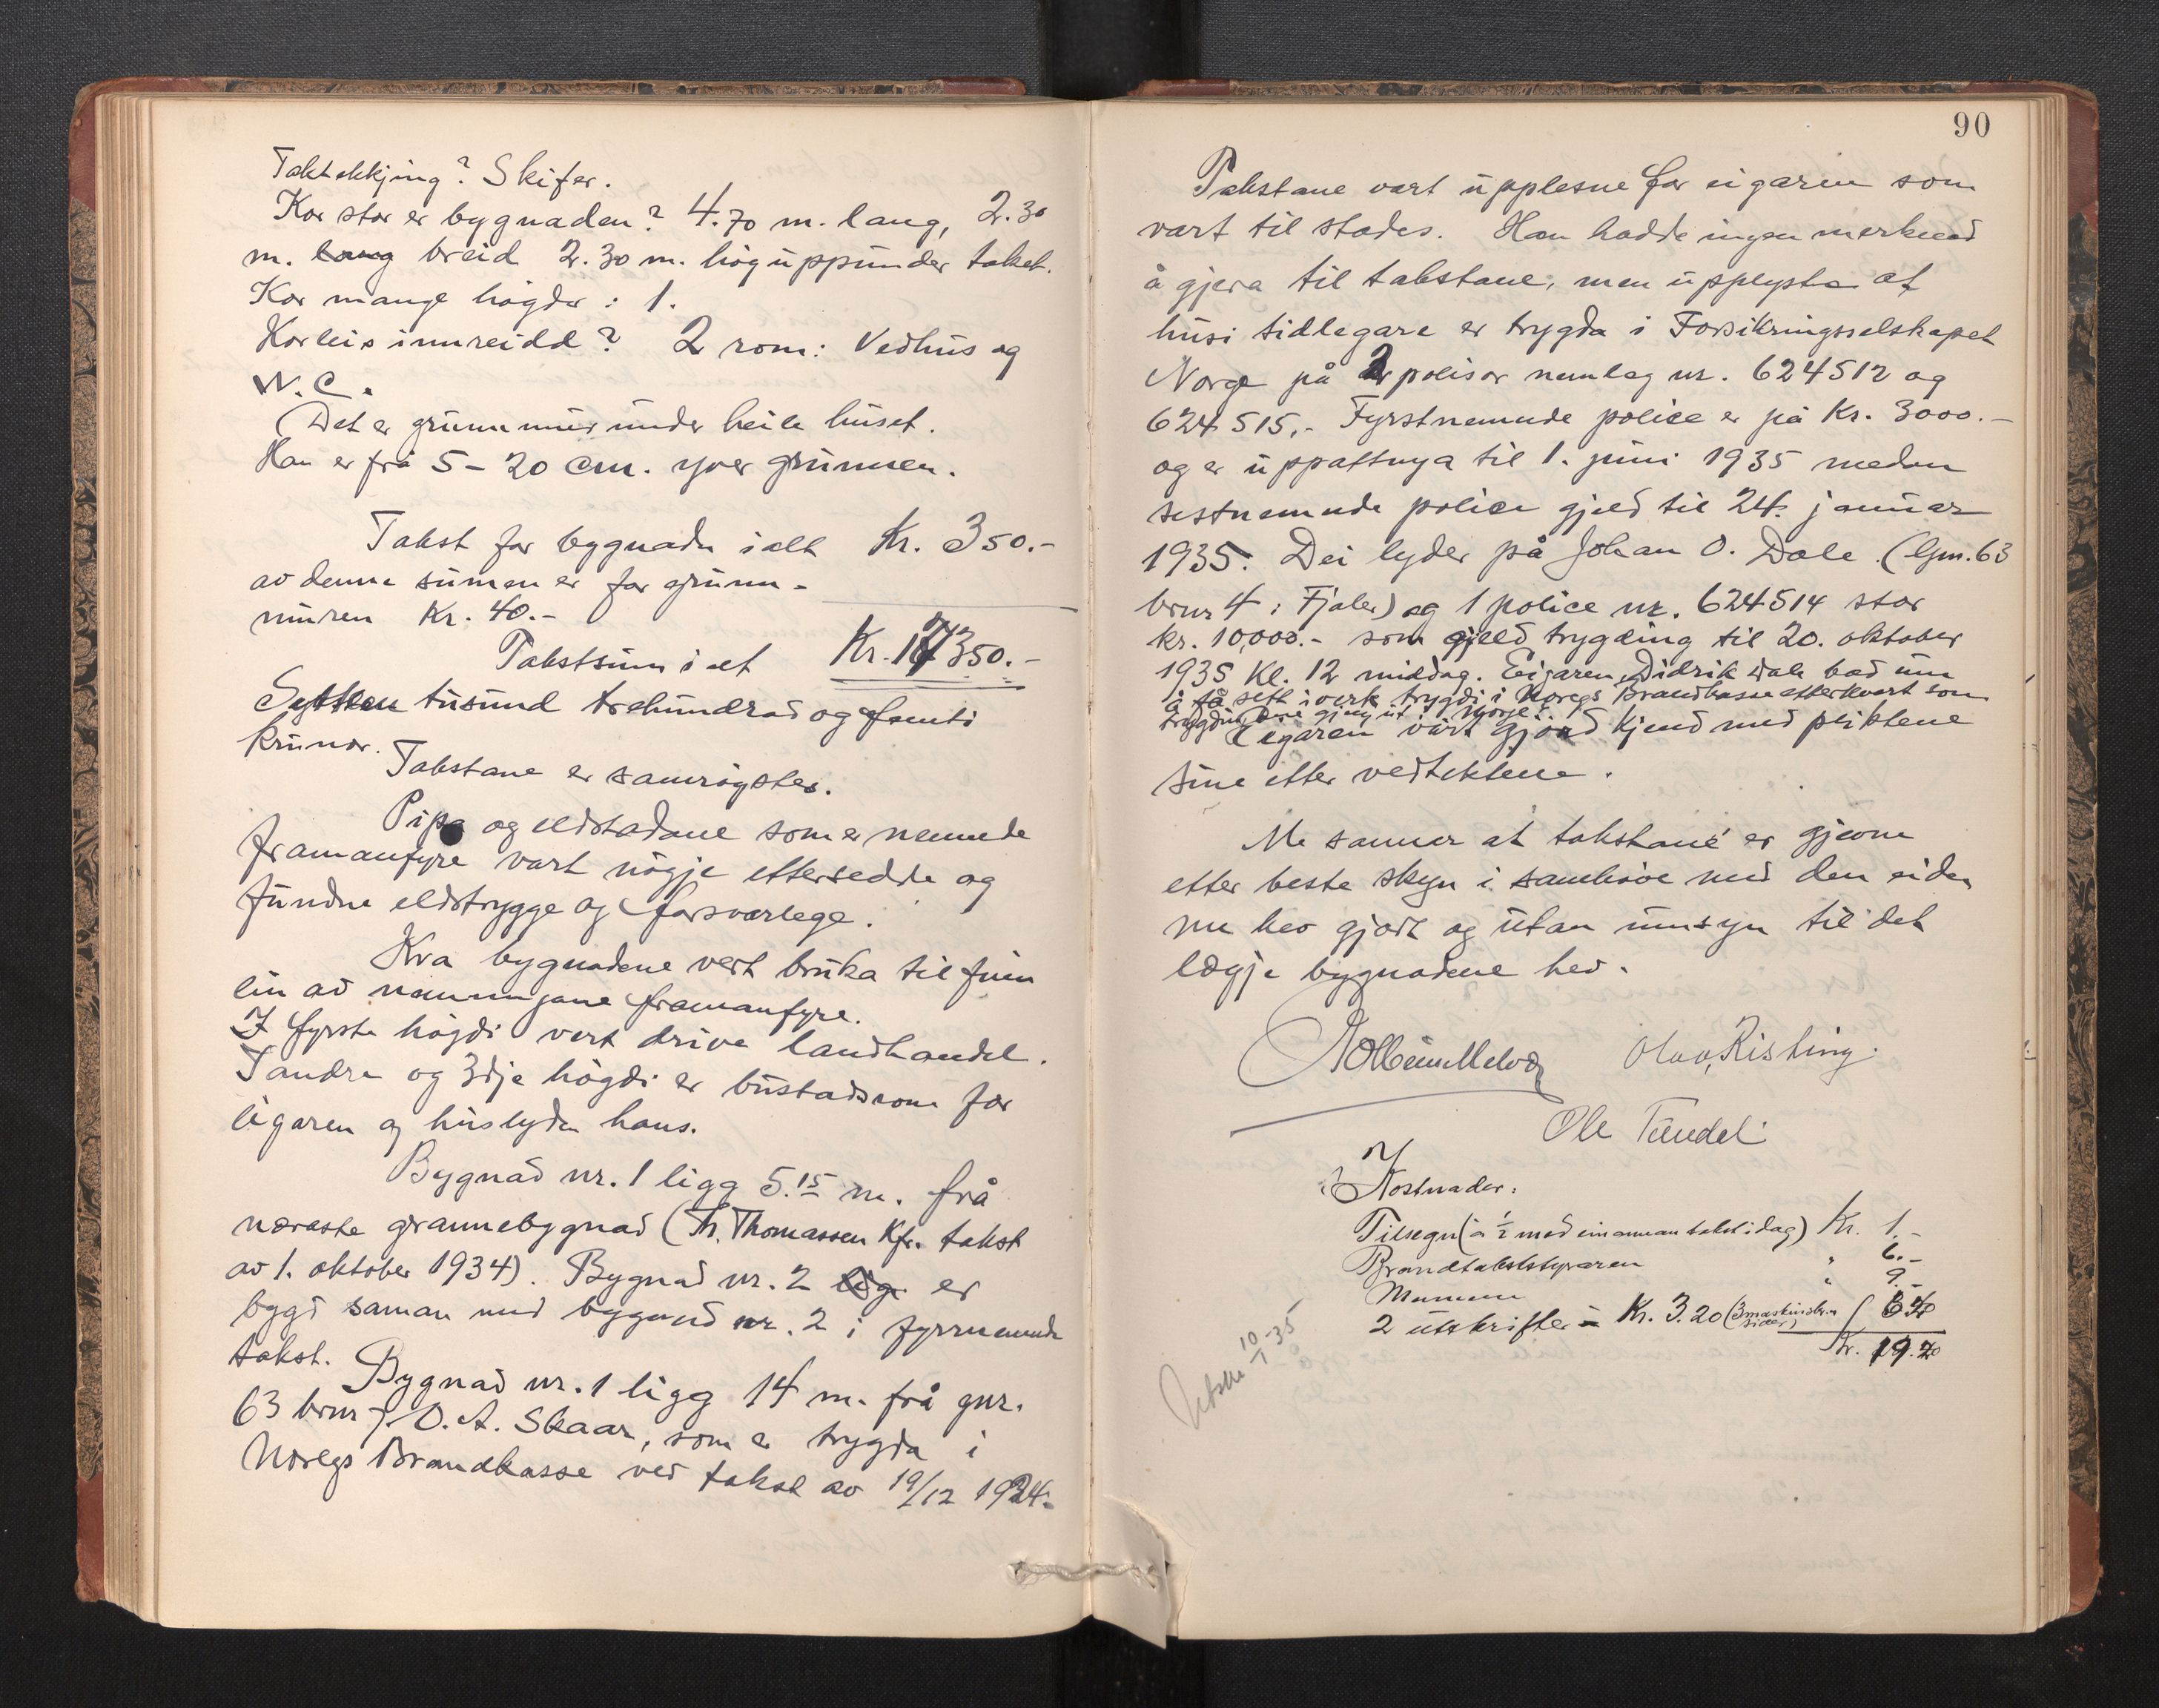 Taktekkjing? Skifer.
Kor stor er bygnaden? 4.70 m. lang, 2.30
m. lang breid 2.30 m. høg uppunder taket.
Kor mange høgder: 1.
Korleis innreidd? 2 rom: Vedhus og
W.C.
Det er grunnmur under heile huset.
Han er frå 5-20 cm. yver grunnen.
Takst for bygnaden i alt Kr. 350.-
av denne sumen er for grunn-
muren Kr. 40.-
Takstsum i alt Kr. 17350.-
Sytten tusund trehundrad og femti
krunor.
Takstane er samrøystes.
Pipa og eldstadane som er nemnde
framanfyre vart nøgje ettersedde og
fundne eldstrygge og forsvarlege.
Kva bygnadene vert bruka til finn
ein av nemningane framanfyre.
I fyrste høgdi vert drive landhandel.
I andre og 3dje høgdi er bustadsrom for
eigaren og huslyden hans.
Bygnad nr. 1 ligg 5.15 m. frå
næraste grannebygnad (Th. Thomassen Kfr. takst
av 1. oktober 1934). Bygnad nr. 2 ligg er
bygd saman med bygnad nr. 2 i fyrrnemnde
takst.
Bygnad nr. 1 ligg 14 m. frå gnr.
63 brnr 7. O. A. Skaar, som er trygda i
Noregs Brandkasse ved takst av 19/12 1924.
90
Takstane vart upplesne for eigaren som
vart til stades. Han hadde ingen merknad
å gjera til takstane, men upplyste at
husi tidlegare er trygda i Forsikringsselskapet
Norge på 2 polisor nemleg nr. 624512 og
624515.- Fyrstnemnde police er på Kr. 3000.-
og er uppattnya til 1. juni 1935 medan
sistnemnde police gjeld til 24. januar
1935. Dei lyder på Johan O. Dale (Gnr. 63
brnr 4 i Fjaler) og 1 police nr. 624514 stor
kr. 10,000.- som gjeld trygding til 20. oktober
1935 Kl. 12 middag. Eigaren, Didrik Dale bad um
å få sett i verk trygdi i Noregs Brandkasse etterkvart som
trygdingane gjeng ut i "Norge".
Eigaren vart gjord kjend med pliktene
sine etter vedtektene.
Me sannar at takstane er gjevne
etter beste skyn i samhøve med den eiden
me hev gjort og utan umsyn til det
lægje bygnadene hev.
Olav Risting.
Ole Tundel
Kostnader:
Tilsegn (à 1/2 med ein annan takst i dag) Kr. 1.-
Brandtakststyraren " 6.-
Mennene " 9.-
2 utskrifter à Kr. 3.20 (3 maskinskr. sider) 6.40
Kr.
Utskr. 10/1-35